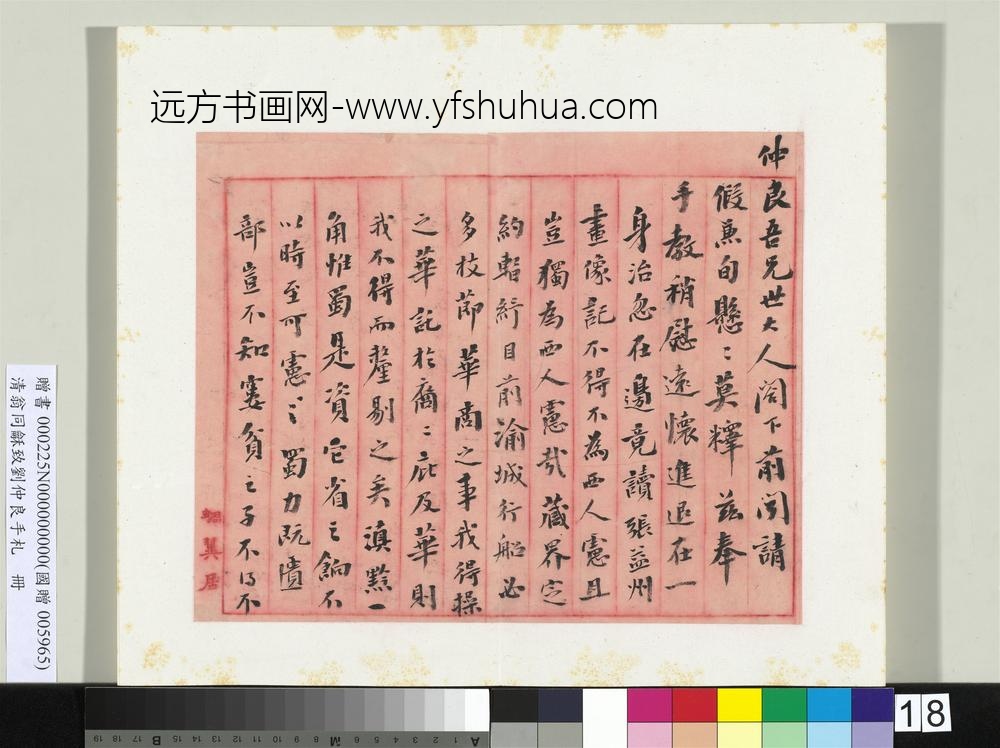 远方书画网-www.yfshuhua.com
仲良吾兄世大人阁下前闻請
假兼旬懸〻莫釋兹奉
手教稍慰遠懷進退在一
身治忽在邊竟讀張益州
畫像記不得不為西人憲且
豈獨為西人憲哉藏界定
約輅紆目前渝城行船必
多枝節華商之事我得操
之華託於商〻庇及華則
我不得而釐剔之矣滇黔一
角惟蜀是資它省之餉不
以時至可憲〻蜀力既匱
部豈不知窶貧之子不得不
翼居
贈書 000225N000000000(國贈 005965)
清翁同龢致劉仲良手札 冊
18